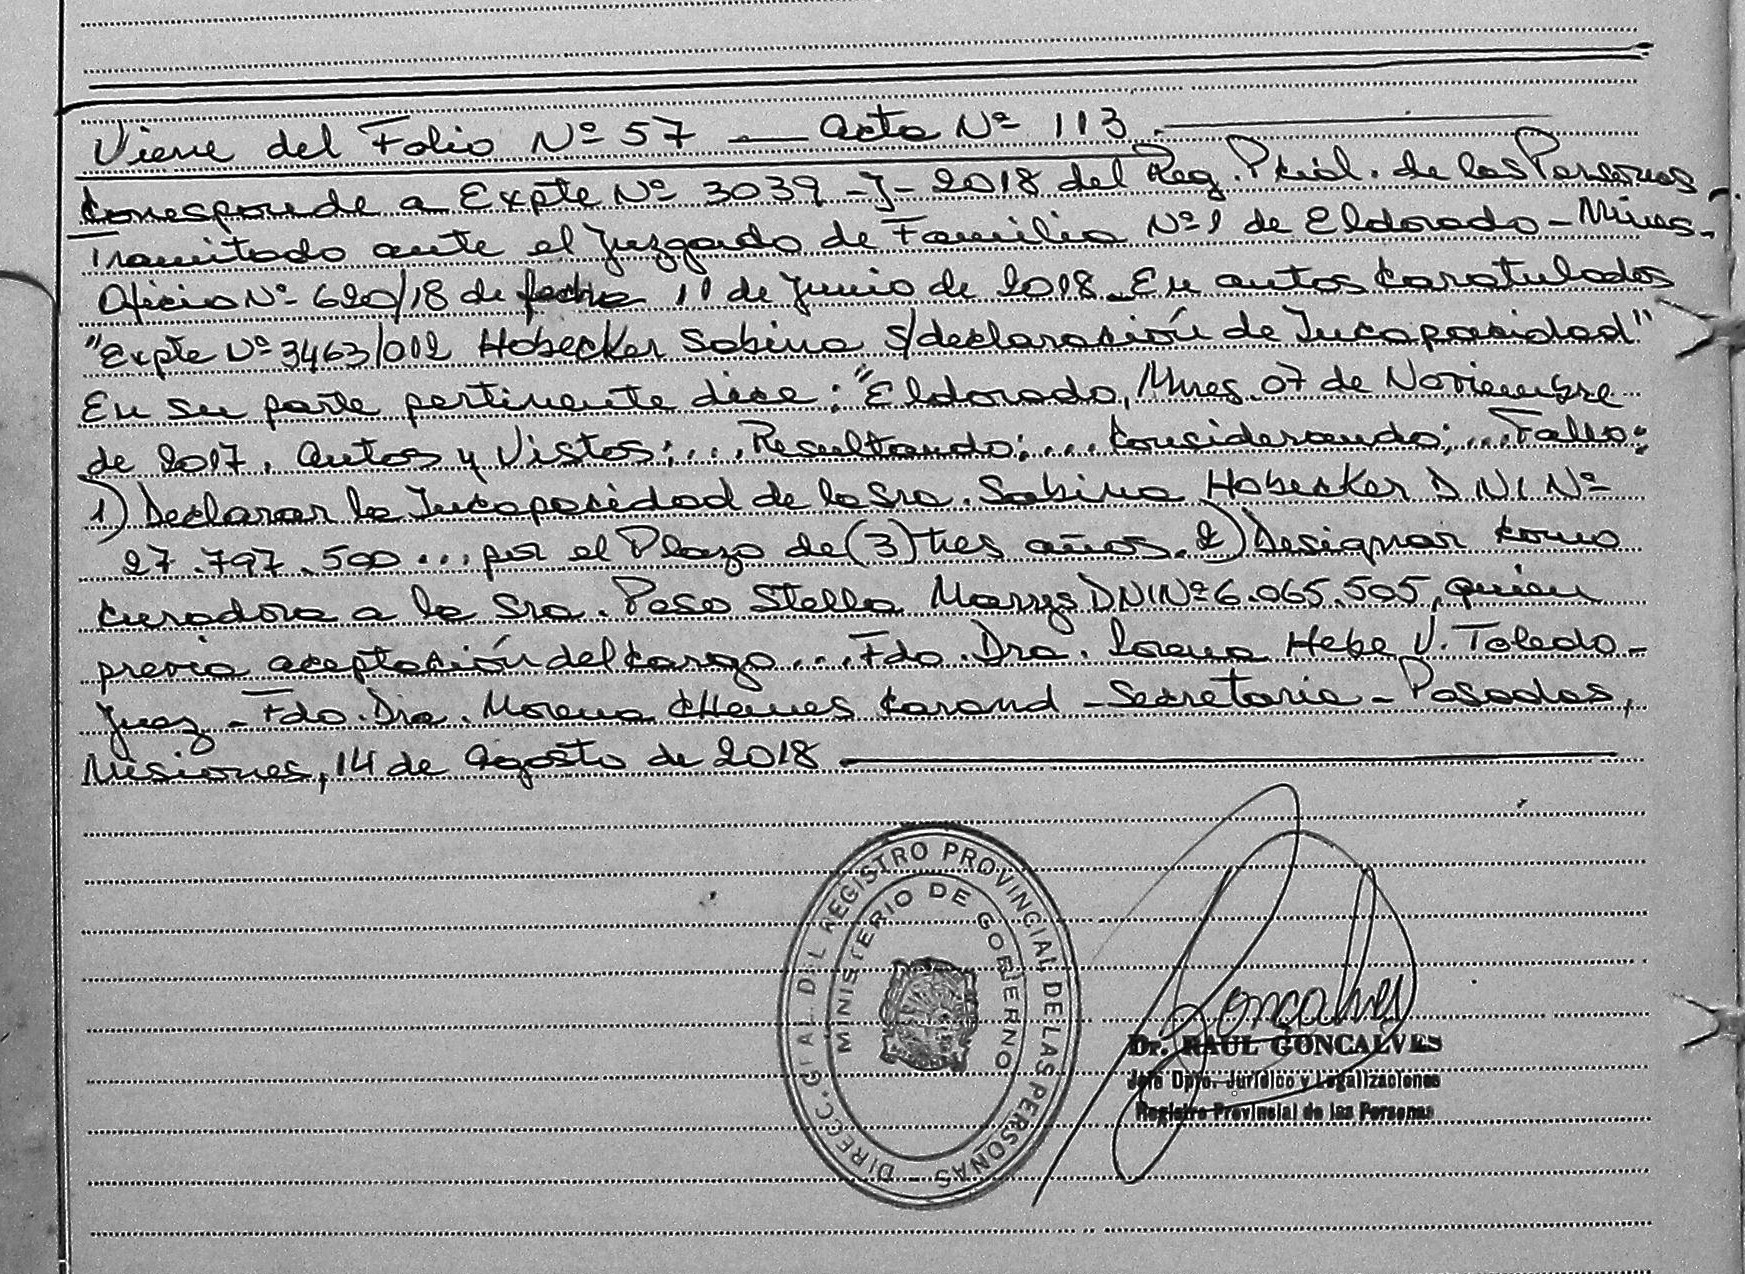 Viene del Folio Nº 57 — Acta Nº 113.
Corresponde a Expte Nº 3039-J-2018 del Reg. Pcial. de las Personas-
Tramitado ante el Juzgado de Familia Nº 1 de Eldorado-Mnes.
Oficio Nº 620/18 de fecha 11 de Junio de 2018. En autos Caratulados
"Expte Nº 3463/012 Hobecker Sabina s/declaración de Incapacidad"
En su parte pertinente dice: "Eldorado, Mnes. 07 de Noviembre
de 2017. Autos y Vistos:... Resultando:... Considerando:... Fallo:
1) Declarar la Incapacidad de la Sra. Sabina Hobecker DNI Nº
27.797.500... por el Plazo de (3) tres años. 2) Designar como
curadora a la Sra. Poso Stella Marys DNI Nº 6.065.505, quien
previa aceptación del cargo... Fdo. Dra. Lorena Hebe V. Toledo-
Juez - Fdo. Dra. Morena Karand - Secretaria - Posadas,
Misiones, 14 de Agosto de 2018
DIRECC. GRAL. DEL REGISTRO PROVINCIAL DE LAS PERSONAS -
MINISTERIO DE GOBIERNO
Goncalves
Dr. RAUL GONCALVES
Jefe Dpto. Jurídico y Legalizaciones
Registro Provincial de las Personas